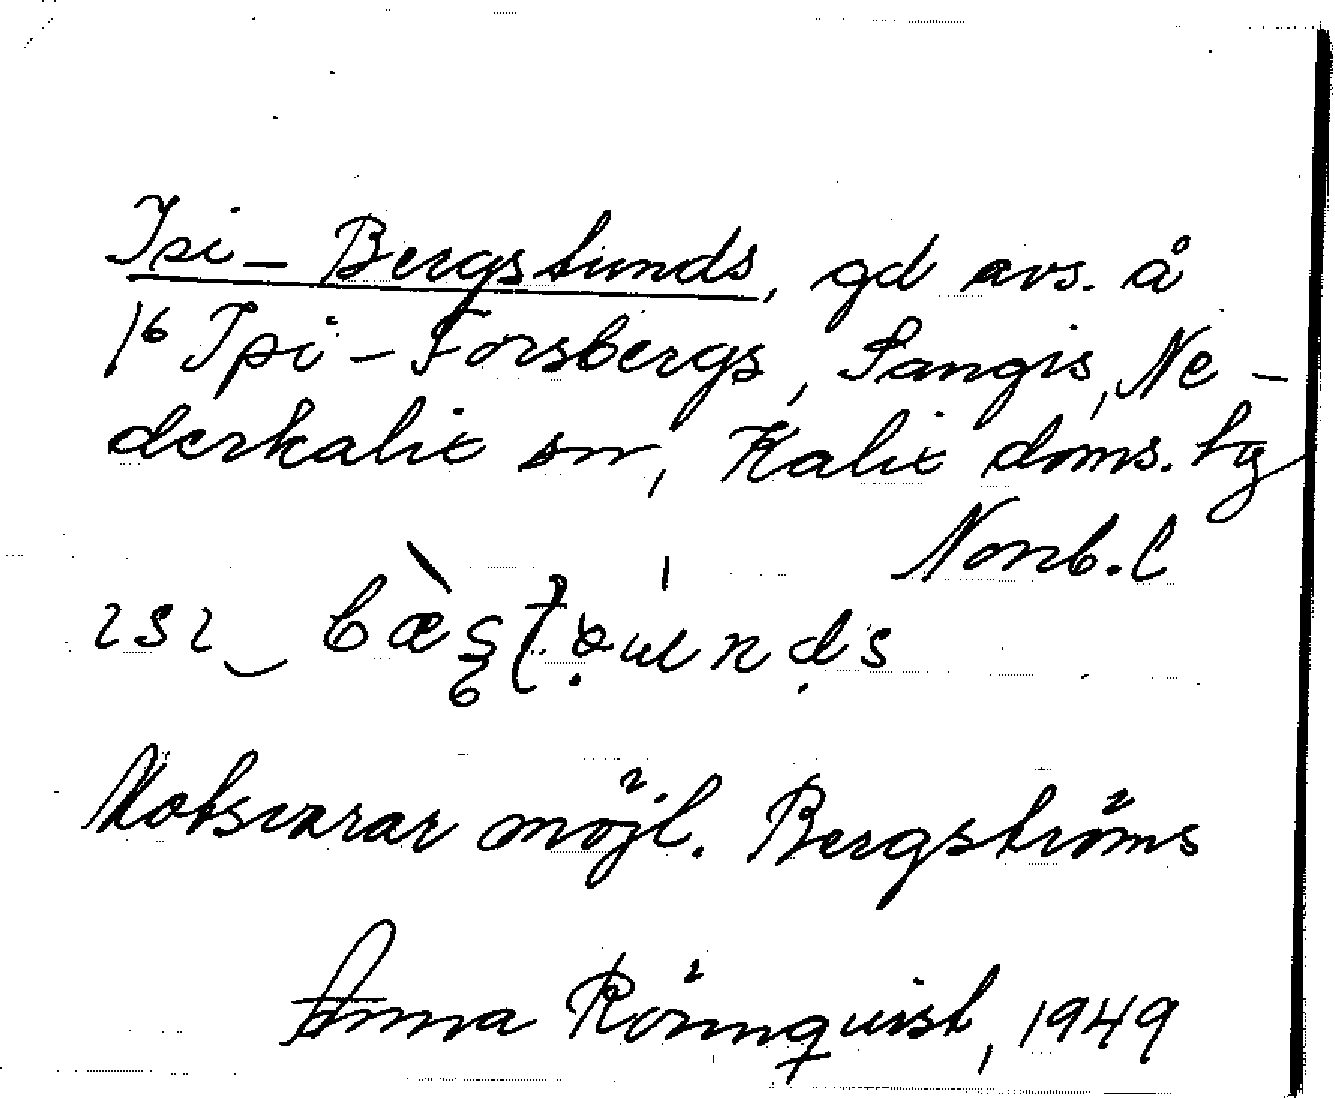 Ipi-Bergstunds, gd avs. å
1⁶ Ipi-Forsbergs, Sangis, Ne-
derkalix sn, Kalix doms. tg
Norrb. l
Motsvarar möjl. Bergströms
Anna Rönnquist, 1949